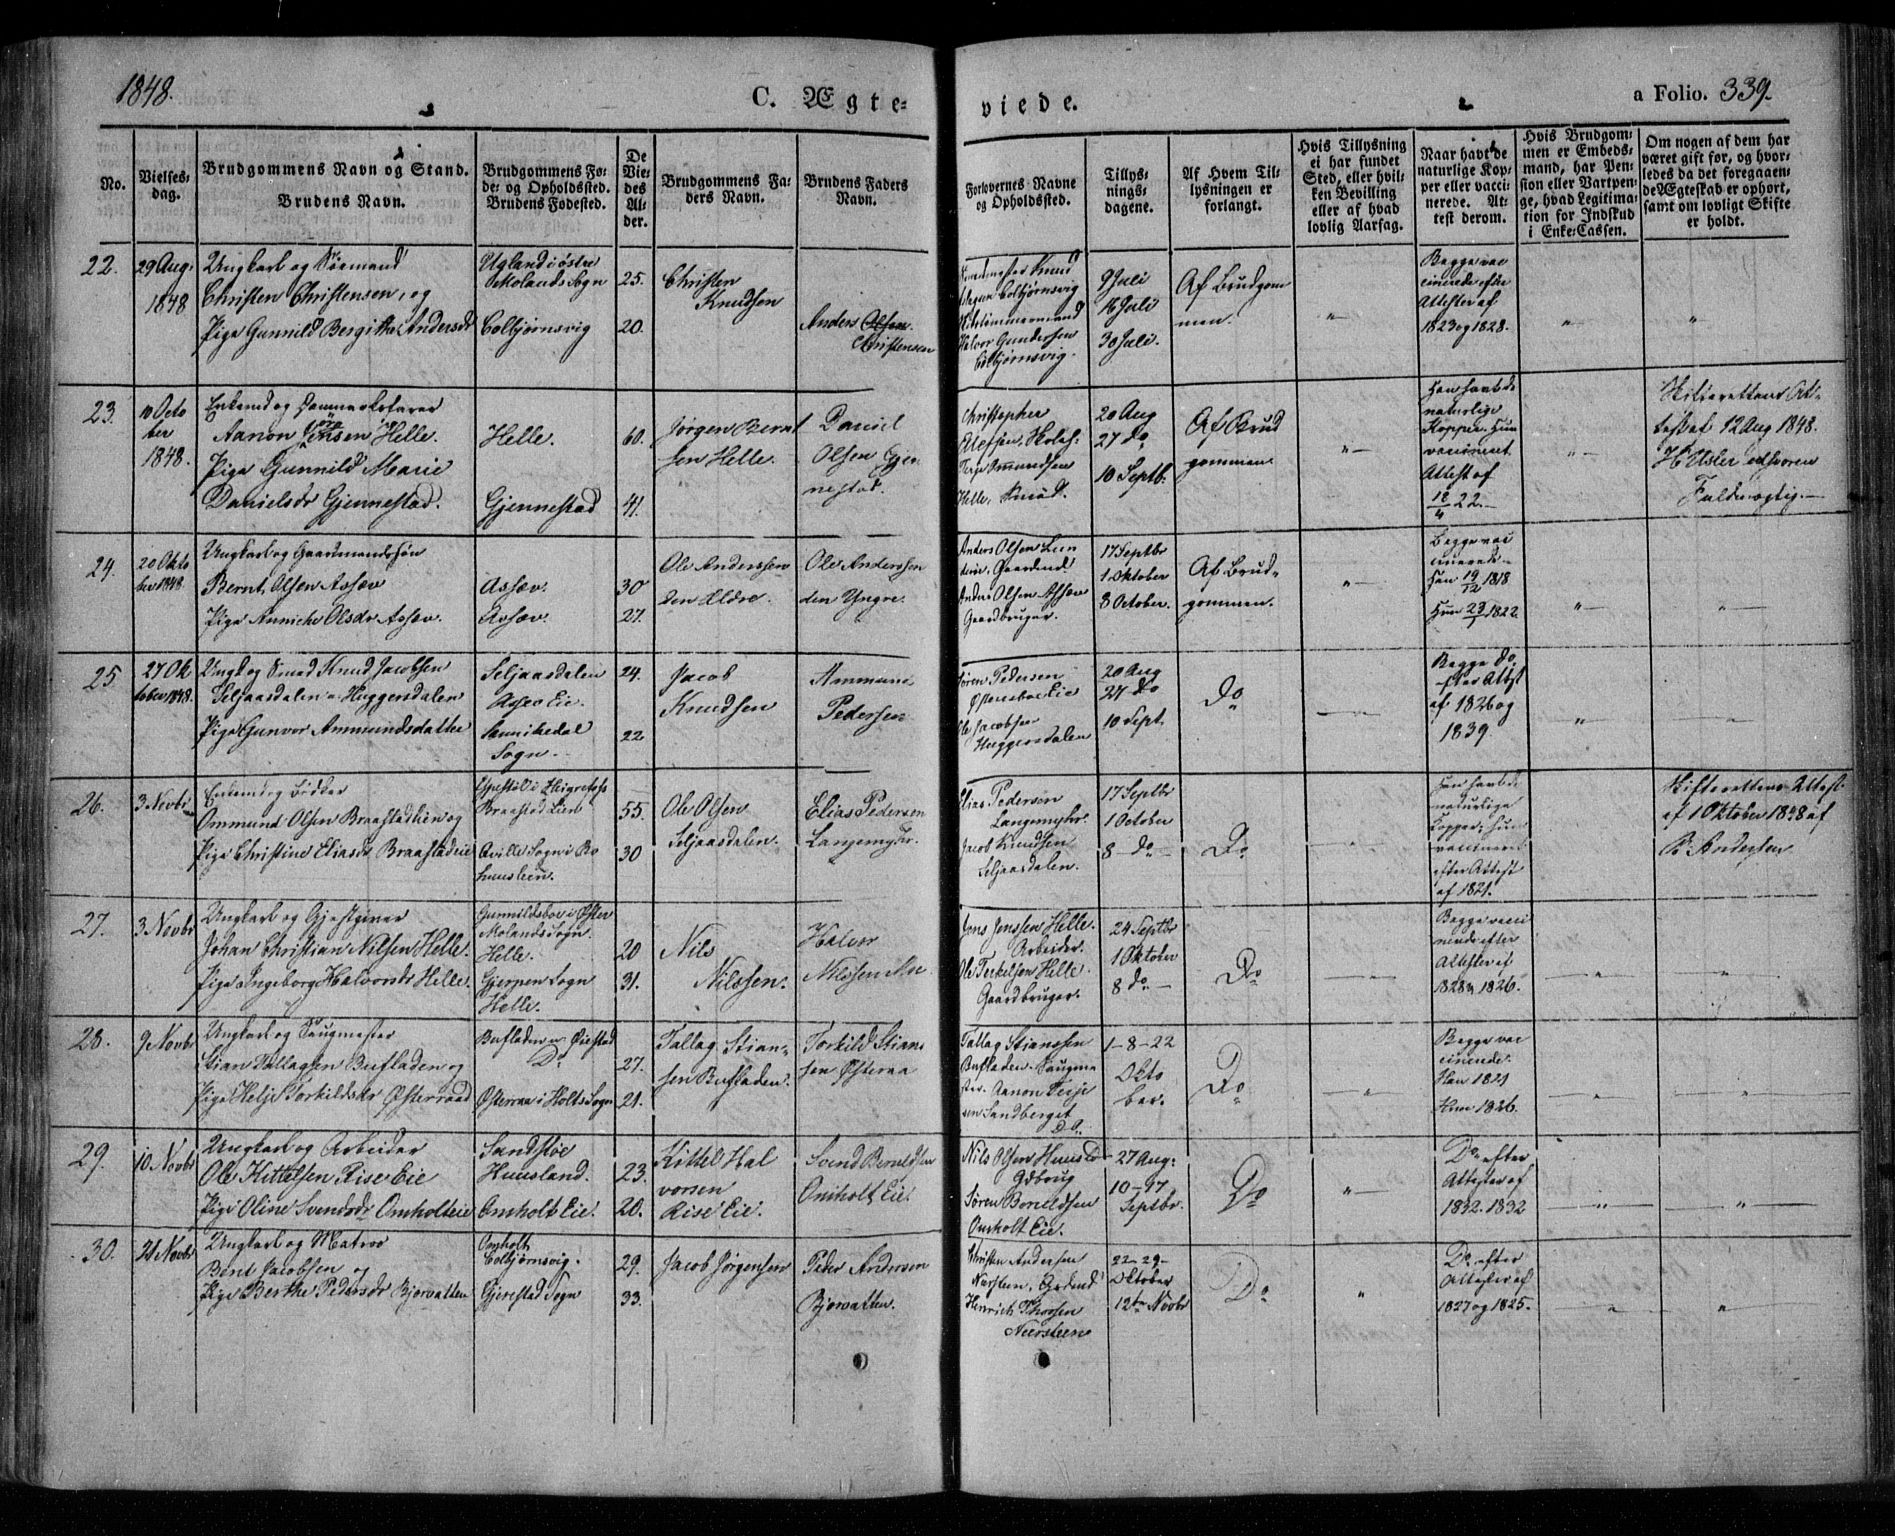 1848.
C. Ægte-
viede.
a Folio. 339.
No.
Vielses-
dag.
Brudgommens Navn og Stand.
Brudens Navn.
Brudgommens Fø-
de- og Opholdssted.
Brudens Fødested.
De
Vie-
des
Al-
der.
Brudgommens Fa-
ders Navn.
Brudens Faders
Navn.
Forlovernes Navne
og Opholdssted.
Tillys-
nings-
dagene.
Af Hvem Til-
lysningen er
forlangt.
Hvis Tillysning
ei har fundet
Sted, eller hvil-
ken Bevilling
eller af hvad
lovlig Aarsag.
Naar havt de
naturlige Kop-
per eller vacci-
nerede. At-
test derom.
Hvis Brudgom-
men er Embeds-
mand, har Pen-
sion eller Vartpen-
ge, hvad Legitima-
tion for Indskud
i Enke-Cassen.
Om nogen af dem har
været gift før, og hvor-
ledes da det foregaaen-
de Ægteskab er ophørt,
samt om lovligt Skifte
er holdt.
22.
29 Aug.
1848
Ungkarl og Sømand
Christen Christensen, og
Pige Gunnild Bergitha Andersdr
Ugland i øster
Molands Sogn
Colbjørnsvig
25.
20.
Christen
Knudsen
Anders Olsen.
Christensen
Knud
Colbjørnsvig
Halvor Gundersen
Colbjørnsvig.
9 Juli
16 Juli
30 Juli.
Af Brudgom
men.
Begge vac
cinerede efter
Attester af
1823 og 1828.
23.
10 Octo
ber
1848.
Enkemd og
Aanon Jensen Helle.
Pige Gunnild Marie
Danielsdr Gjennestad.
Helle.
Gjennestad
60.
41.
Jørgen Bernt
sen Helle.
Daniel
Olsen Gjen
nestad.
Christopher
Olefsen
Terje Ommundsen
Helle, Smed.
20 Aug
27 do
10 Septb.
Af Brud
gommen
Han havt de
naturlige
Kopper. Hun
vaccineret
Attest af
12/4 22.
Skifterettens At-
test af 12 Aug 1848.
Fuldmægtig.
24.
20 Okto
ber 1848.
Ungkarl og Gaardmandssøn
Bernt Olsen Assev
Pige Anniche Olsdr Assev.
Assev.
Assev.
30
27.
Ole Anderssen
den Ældre.
Ole Anderssen
den Yngre.
Anders Olsen
Gaardmd.
Anders Olsen Assev
Gaardbruger.
17 Septbr
1 Oktober
8 October.
Af Brud-
gommen.
Begge vac
cinerede
Han 19/12 1818
Hun 23/7 1822
25
27 Ok
tober 1848.
Ungk og Smed Knud Jacobsen
Seljaasdalen a Huggersdalen
Pige Gunvor Ammundsdatter
Seljaasdalen
Assev Eie.
Sannikedal
Sogn.
24.
22
Jacob
Knudsen
Ammund
Pedersen
Søren Pedersen
Østensboe Eie
Ole Jacobsen
Huggersdalen
20 Aug
27 do
10 Sept.
do
Begge do
efter Attest
af 1826 og
1839.
26.
3 Novbr
Enkemd og Bødker
Ommund Olsen Braastadeien og
Pige Christine Eliasdr Braastadeie
Braastad Eien
55.
30
Ole Olsen
Seljaasdalen.
Elias Pedersen
Langemyhr.
Elias Pedersen
Langemyhr.
Jacob Knudsen
Seljaasdalen.
17 Septbr
1 October
8 do
Do
Han havt de
naturlige
Kopper; Hun
vaccineret
efter Attest
af 1821.
Skifterettens Attest
af 1 Oktober 1848 af
Andersen
27.
3 Novbr
Ungkarl og Gjestgiver
Johan Christian Nilsen Helle.
Pige Ingeborg Halvorsdr Helle.
Gunnildsboe i Øster
Molands Sogn.
Helle.
Gjerpen Sogn
Helle.
20
31.
Nils
Nilssen.
Halvor
Nilssen Moe
Jens Jenssen Helle.
Arbeider.
Ole Terkelsen Helle.
Gaardbruger.
24 Septbr
1 Oktober
8 do
Do
Begge vacci
nerede efter
Attester af
1828 & 1826.
28.
9 Novbr
Ungkarl og Saugmester
Stian Tallagsen Busladen og
Pige Helje Torkildsdr Østeraad
Busladen i Øiestad
Do
Østeraa i Holts Sogn
27.
21.
Tallag Stian-
sen Busladen.
Torkild Stian
sen Østeraa
Tallag Stianssen
Busladen. Saugme
ster. Aanon Terje
sen Sandberget
Do.
1-8-22
Okto
ber.
Do
Begge vac
cinerede.
Han 1821
Hun 1826.
29.
10 Novbr
Ungkarl og Arbeider
Ole Kittelsen Rise Eie
Pige Oline Svendsdr Omholteie
Sandstøe
Huusland.
Omholt Eie.
23.
20.
Kittel Hal
vorsen
Rise Eie.
Svend Bereldsen
Omholt Eie.
Nils Olsen
Gdbrug
Søren Boreldsen
Omholt Eie.
27 Aug.
10-17
Septbr.
Do
Do efter
Attester af
1832. 1832
30.
21 Novbr
Ungkarl og Matros
Bent Jacobsen og
Pige Berthe Pedersdr Bjorvatten
Omholt
Colbjørnsvig.
Gjerestad Sogn
29.
33.
Jacob Jørgensen
Peder Andersen
Bjorvatten.
Christen Andersen
Neersteen, Grdmd
Henrich Thorsen
Neersteen
22-29-
Oktober
12te Novbr
Do
Do efter
Attester af
1827 og 1825.